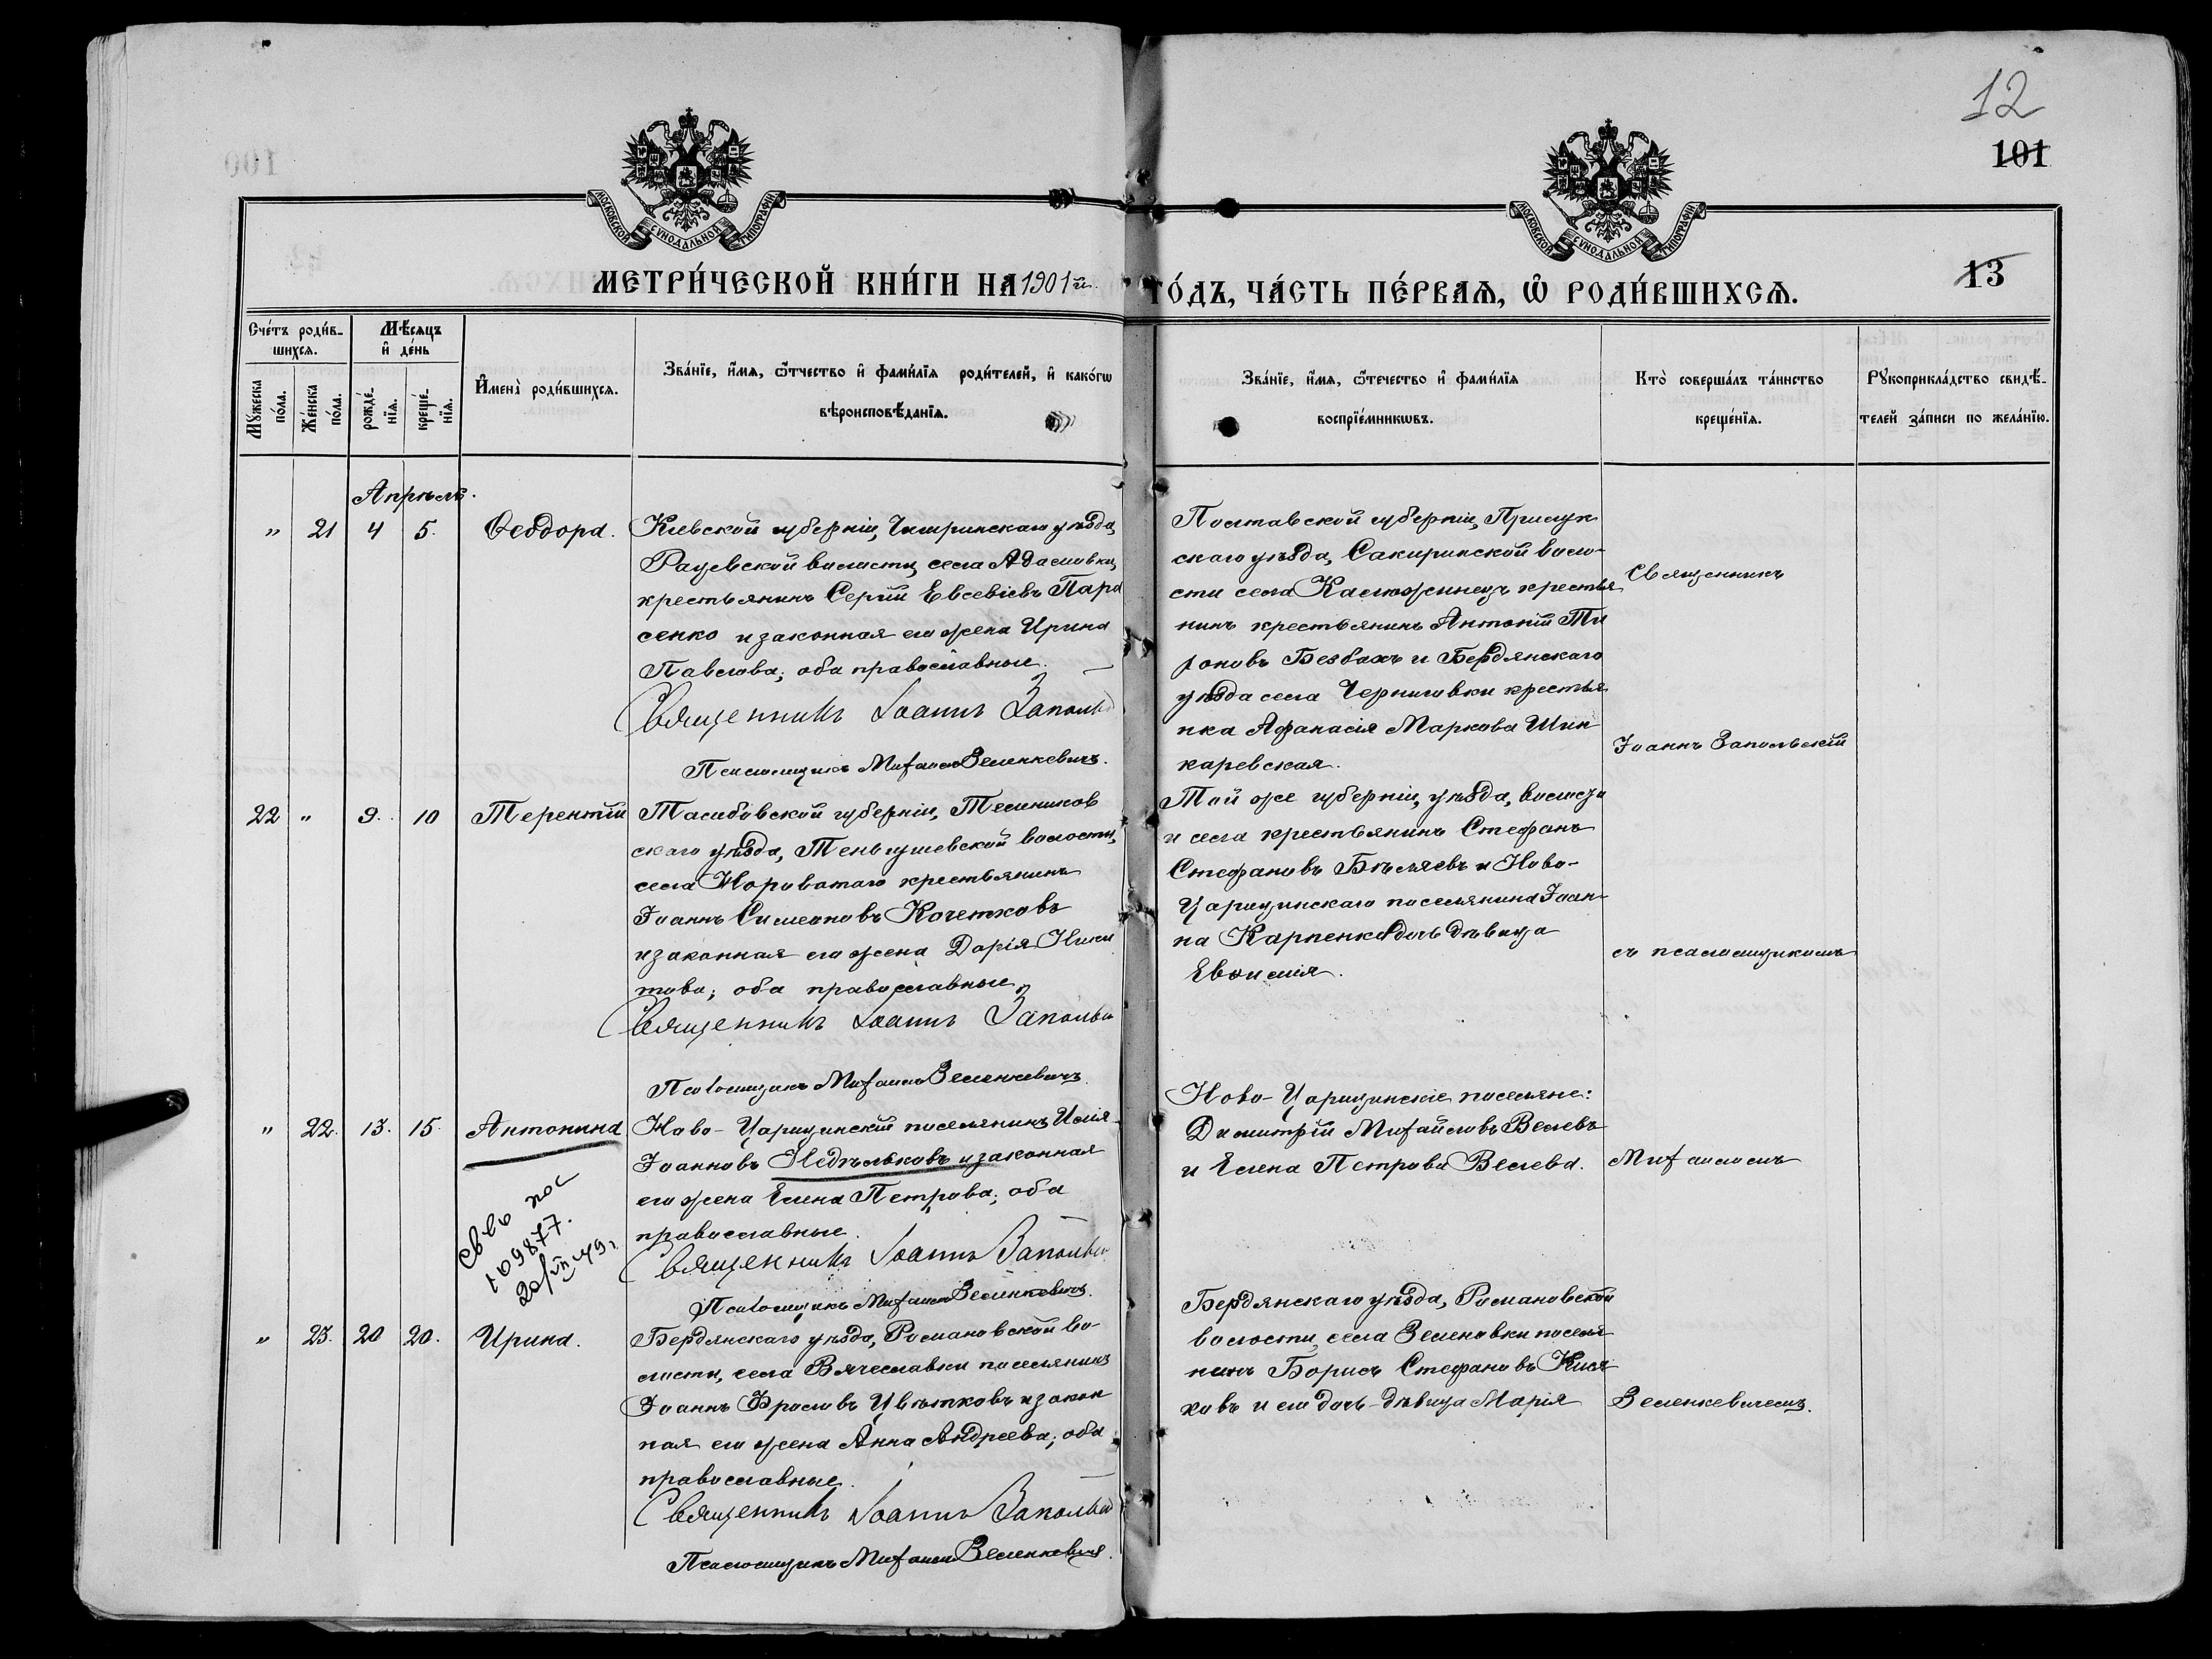 12
101
13
МОСКОВСКОЙ СУНОДАЛЬНОЙ ТИПОГРАФІИ
МОСКОВСКОЙ СУНОДАЛЬНОЙ ТИПОГРАФІИ
МЕТРИ́ЧЕСКОЙ КНИ́ГИ НА 1901й.
ГО́ДЪ, ЧА́СТЬ ПЕ́РВАѦ, Ѡ РОДИ́ВШИХСѦ.
Сче́тъ роди́в-
шихсѧ.
Мѣ́сѧцъ
и҆ де́нь
Мꙋ́жеска
по́ла.
Же́нска
по́ла.
рожде́-
нїѧ.
креще́-
нїѧ.
И҆мена̀ роди́вшихсѧ.
Зва́нїе, и҆́мѧ, ѻ҆́тчество и҆ фами́лїѧ роди́телей, и҆ како́гѡ
вѣроисповѣ́данїѧ.
Зва́нїе, и҆́мѧ, ѻ҆́течество и҆ фами́лїѧ
воспрїе́мникѡвъ.
Кто̀ соверша́лъ та́инство
креще́нїѧ.
Рꙋкоприкла́дство свидѣ́-
телей за́писи по жела́нїю.
Апрѣль.
" 21 4 5. Ѳеодора.
Кіевской губерніи, Чигиринскаго уѣзда,
Рацевской волости, села Адамовки,
крестьянинъ Сергій Евсевіевъ Пара
сенко и законная его жена Ирина
Павлова; оба православные.
Священникъ Іоаннъ Запольс
Псаломщикъ Михаилъ Зеленкевичъ.
Полтавской губерніи, Прилук
скаго уѣзда, волo-
сти села крестья
нинъ крестьянинъ Антоній Ти
роновъ Безбахъ и Бердянскаго
уѣзда села Черниговки крестья
нка Афанасія Маркова Шин
каревская.
Священникъ
Іоаннъ Запольскій
22 " 9. 10 Терентій
Тамбовской губерніи, Темников
скаго уѣзда, Теньгушевской волости,
села Нороватаго крестьянинъ
Іоаннъ Симеоновъ Кочетковъ
и законная его жена Дарія Ники
това; оба православные.
Священникъ Іоаннъ Запольс
Псаломщикъ Михаилъ Зеленкевичъ.
Той же губерніи, уѣзда, волости
и села крестьянинъ Стефанъ
Стефановъ Бѣляевъ и Ново-
Царицинскаго поселянина Іоан-
на Карпенко дочь дѣвица
Евѳимія.
съ псаломщикомъ
" 22. 13. 15. Антонина
Ново-Царицинскій поселянинъ Илія
Іоанновъ Недѣльковъ и законная
его жена Елена Петрова; оба
православные.
Священникъ Іоаннъ Запольс
Псаломщикъ Михаилъ Зеленкевичъ.
109877.
20/VII 49г
Ново-Царицинскіе поселяне:
Димитрій Михайловъ Велевъ
и Елена Петрова Велева.
Михаиломъ
" 23. 20 20. Ирина.
Бердянскаго уѣзда, Романовской во-
лости, села Вячеславки поселянинъ
Іоаннъ Цвѣтковъ и закон
ная его жена Анна Андреева; оба
православные.
Священникъ Іоаннъ Запольс
Псаломщикъ Михаилъ Зеленкевичъ.
Бердянскаго уѣзда, Романовской
волости, села Зеленовки поселя
нинъ Борисъ Стефановъ Кися
ковъ и его дочь-дѣвица Марія
Зеленкевичемъ.